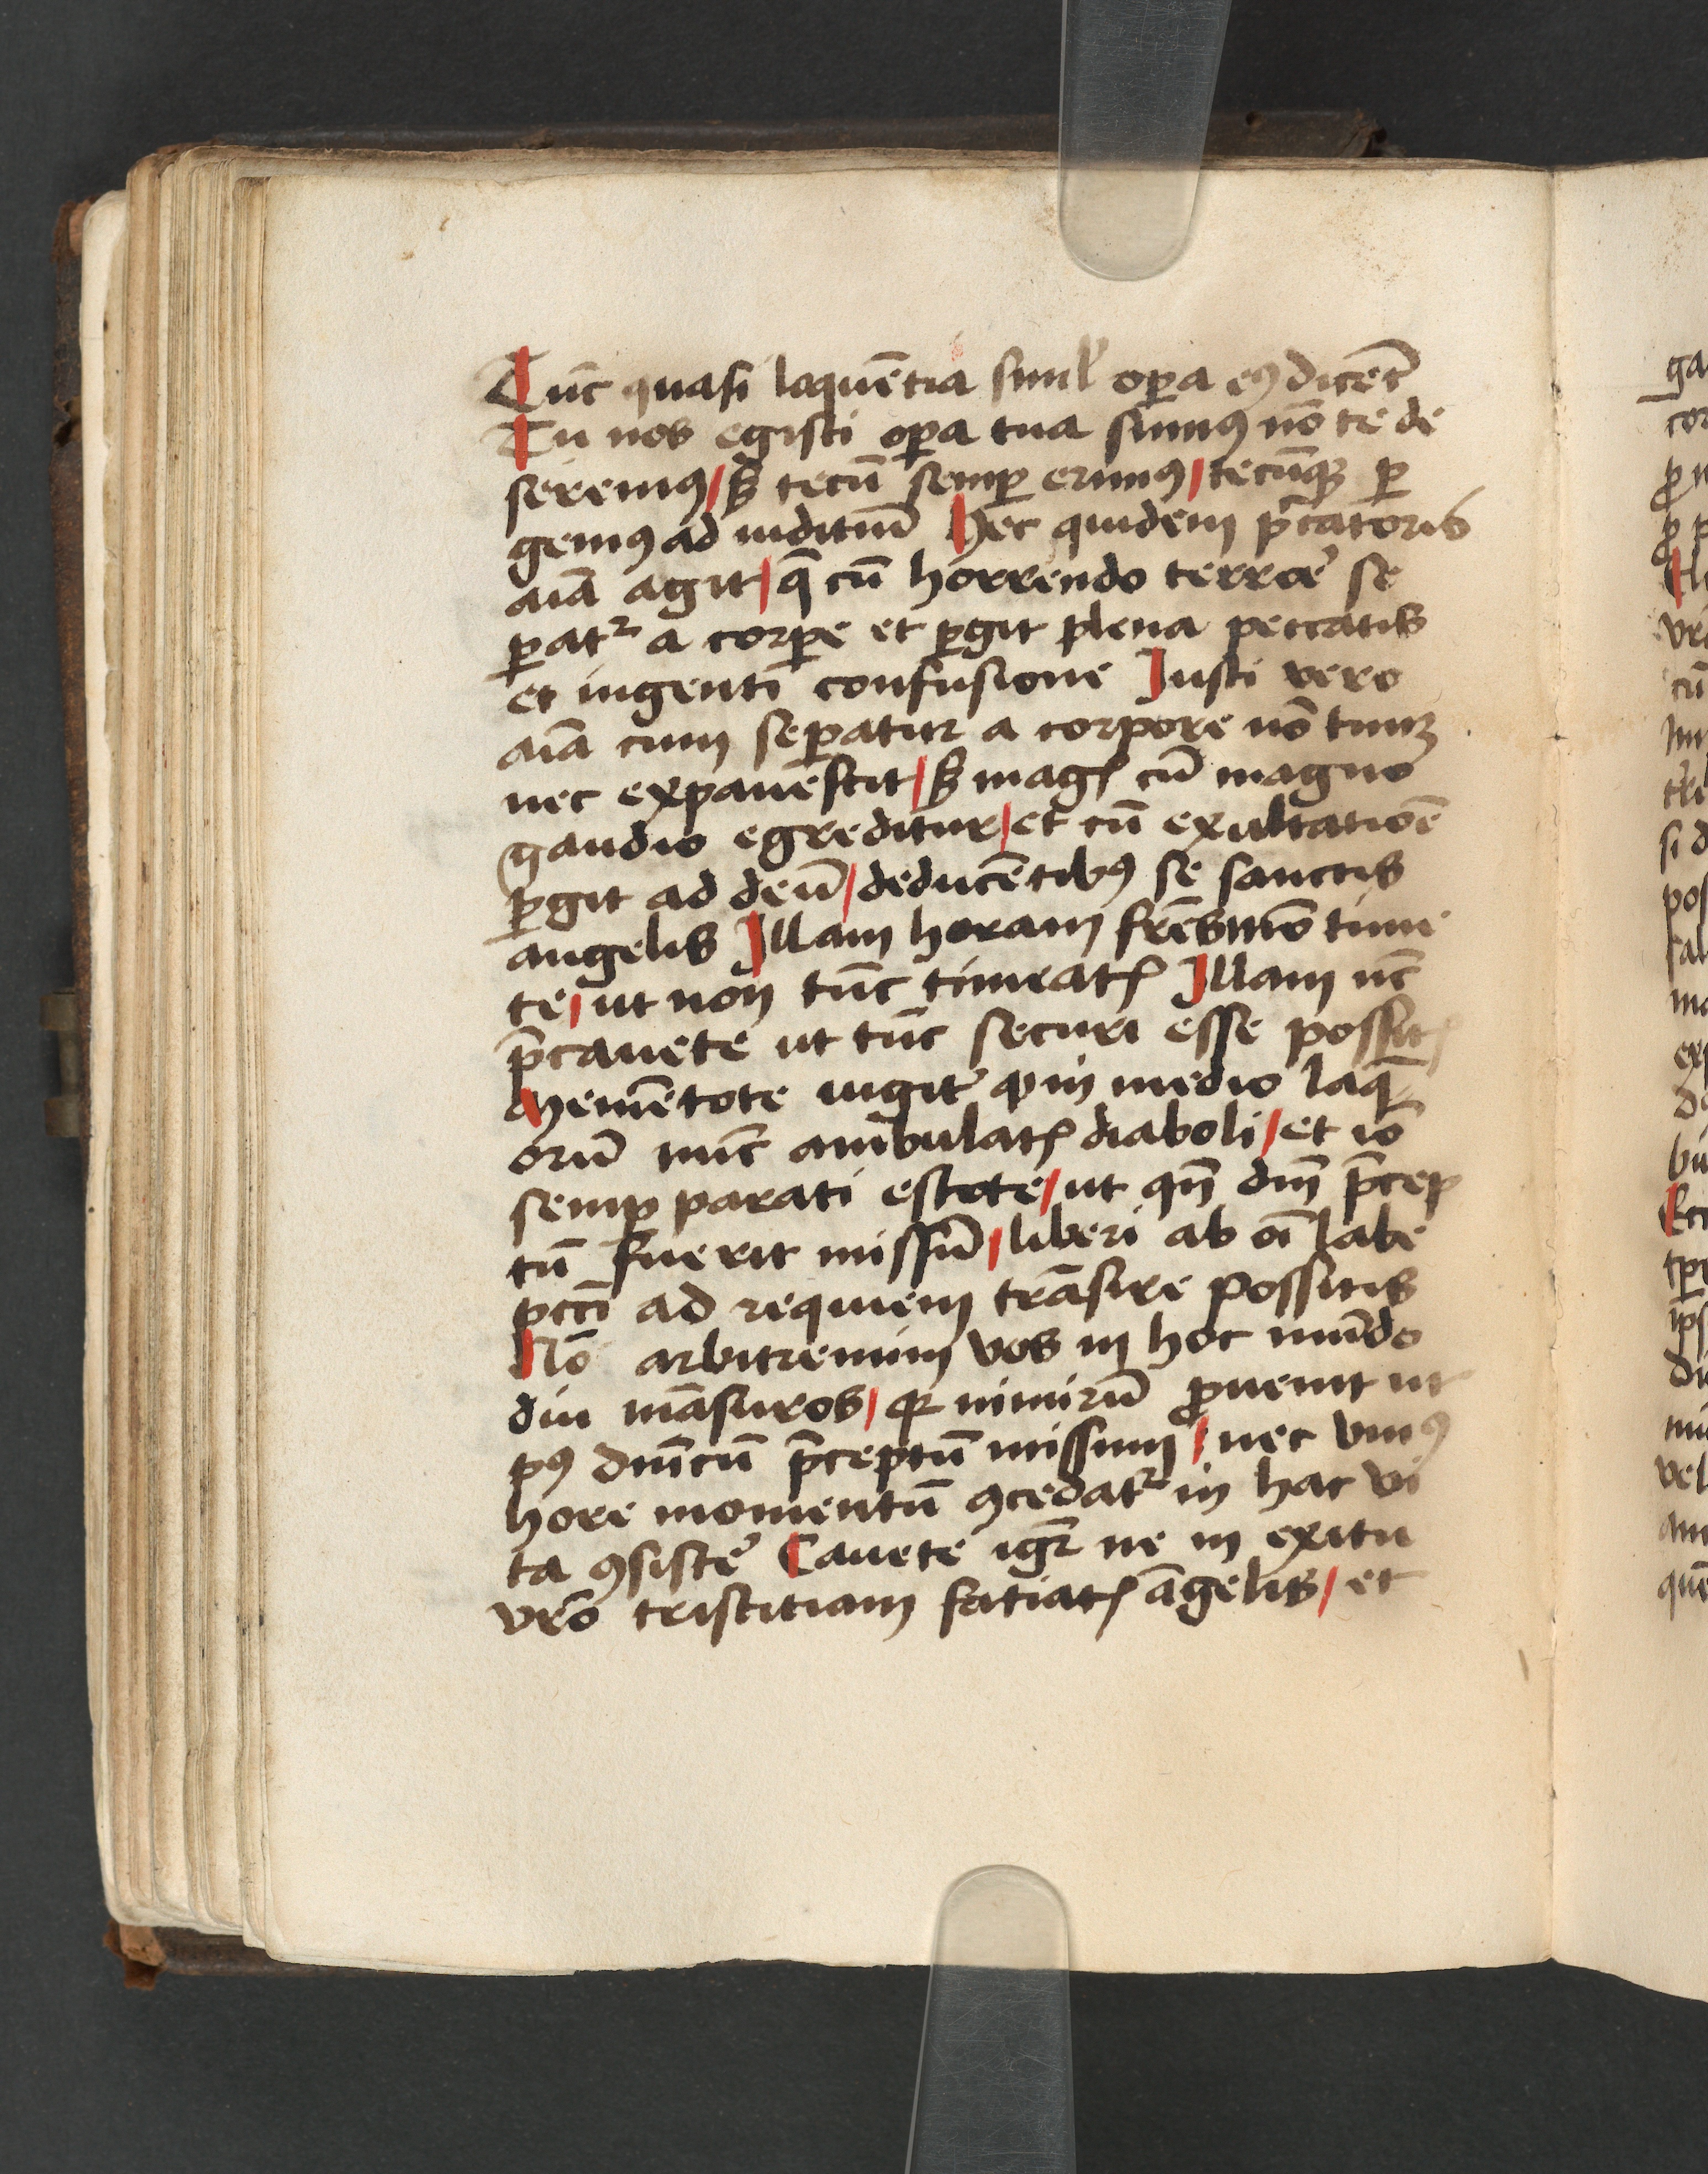 Tūc quasi laquētia simł opa eꝰ dicēt
Tu nos egisti opa tua sumꝰ nō te de
seremꝰ / sꝫ tecū semꝑ erimꝰ / tecūqꝫ ꝑ
gemꝰ ad iuditiū Hec quidem pctatoris
aīa agit / q̄ cū horrendo terrore se
ꝑatr a corpe et ꝑgit plena peccatis
et ingenti confusione Justi vero
aīa cum sepatur a corpore nō timꝫ
nec expauescit / sꝫ magꝭ cū magno
gaudio egreditur / et cū exultatiōe
ꝑgit ad deū / deducētibꝰ se sanctis
angelis Illam horam frēs mo time
te / ut non tūc timeatꝭ Illam nc̄
p̄cauete ut tūc securi esse possitꝭ
Memētote iugit̾ ꝙ in medio laq̄
orū nūc ambulatꝭ diaboli / et iō
semꝑ parati estote / ut qn̄ dm̄ p̄cep
tū fuerit missū / liberi ab oī labe
pcci̅ ad requiem trāsire possitis
Nō arbitremini vos in hoc mūdo
diu māsuros / qꝛ nimirū ꝓuenit ut
pꝰ dni̅cū p̄ceptū missum / nec vniꝰ
hore momentū ꝯcedatr in hac vi
ta ꝯsiste̾ Cauete igr̄ ne in exitu
vr̄o tristitiam fatiatꝭ āgelis / et